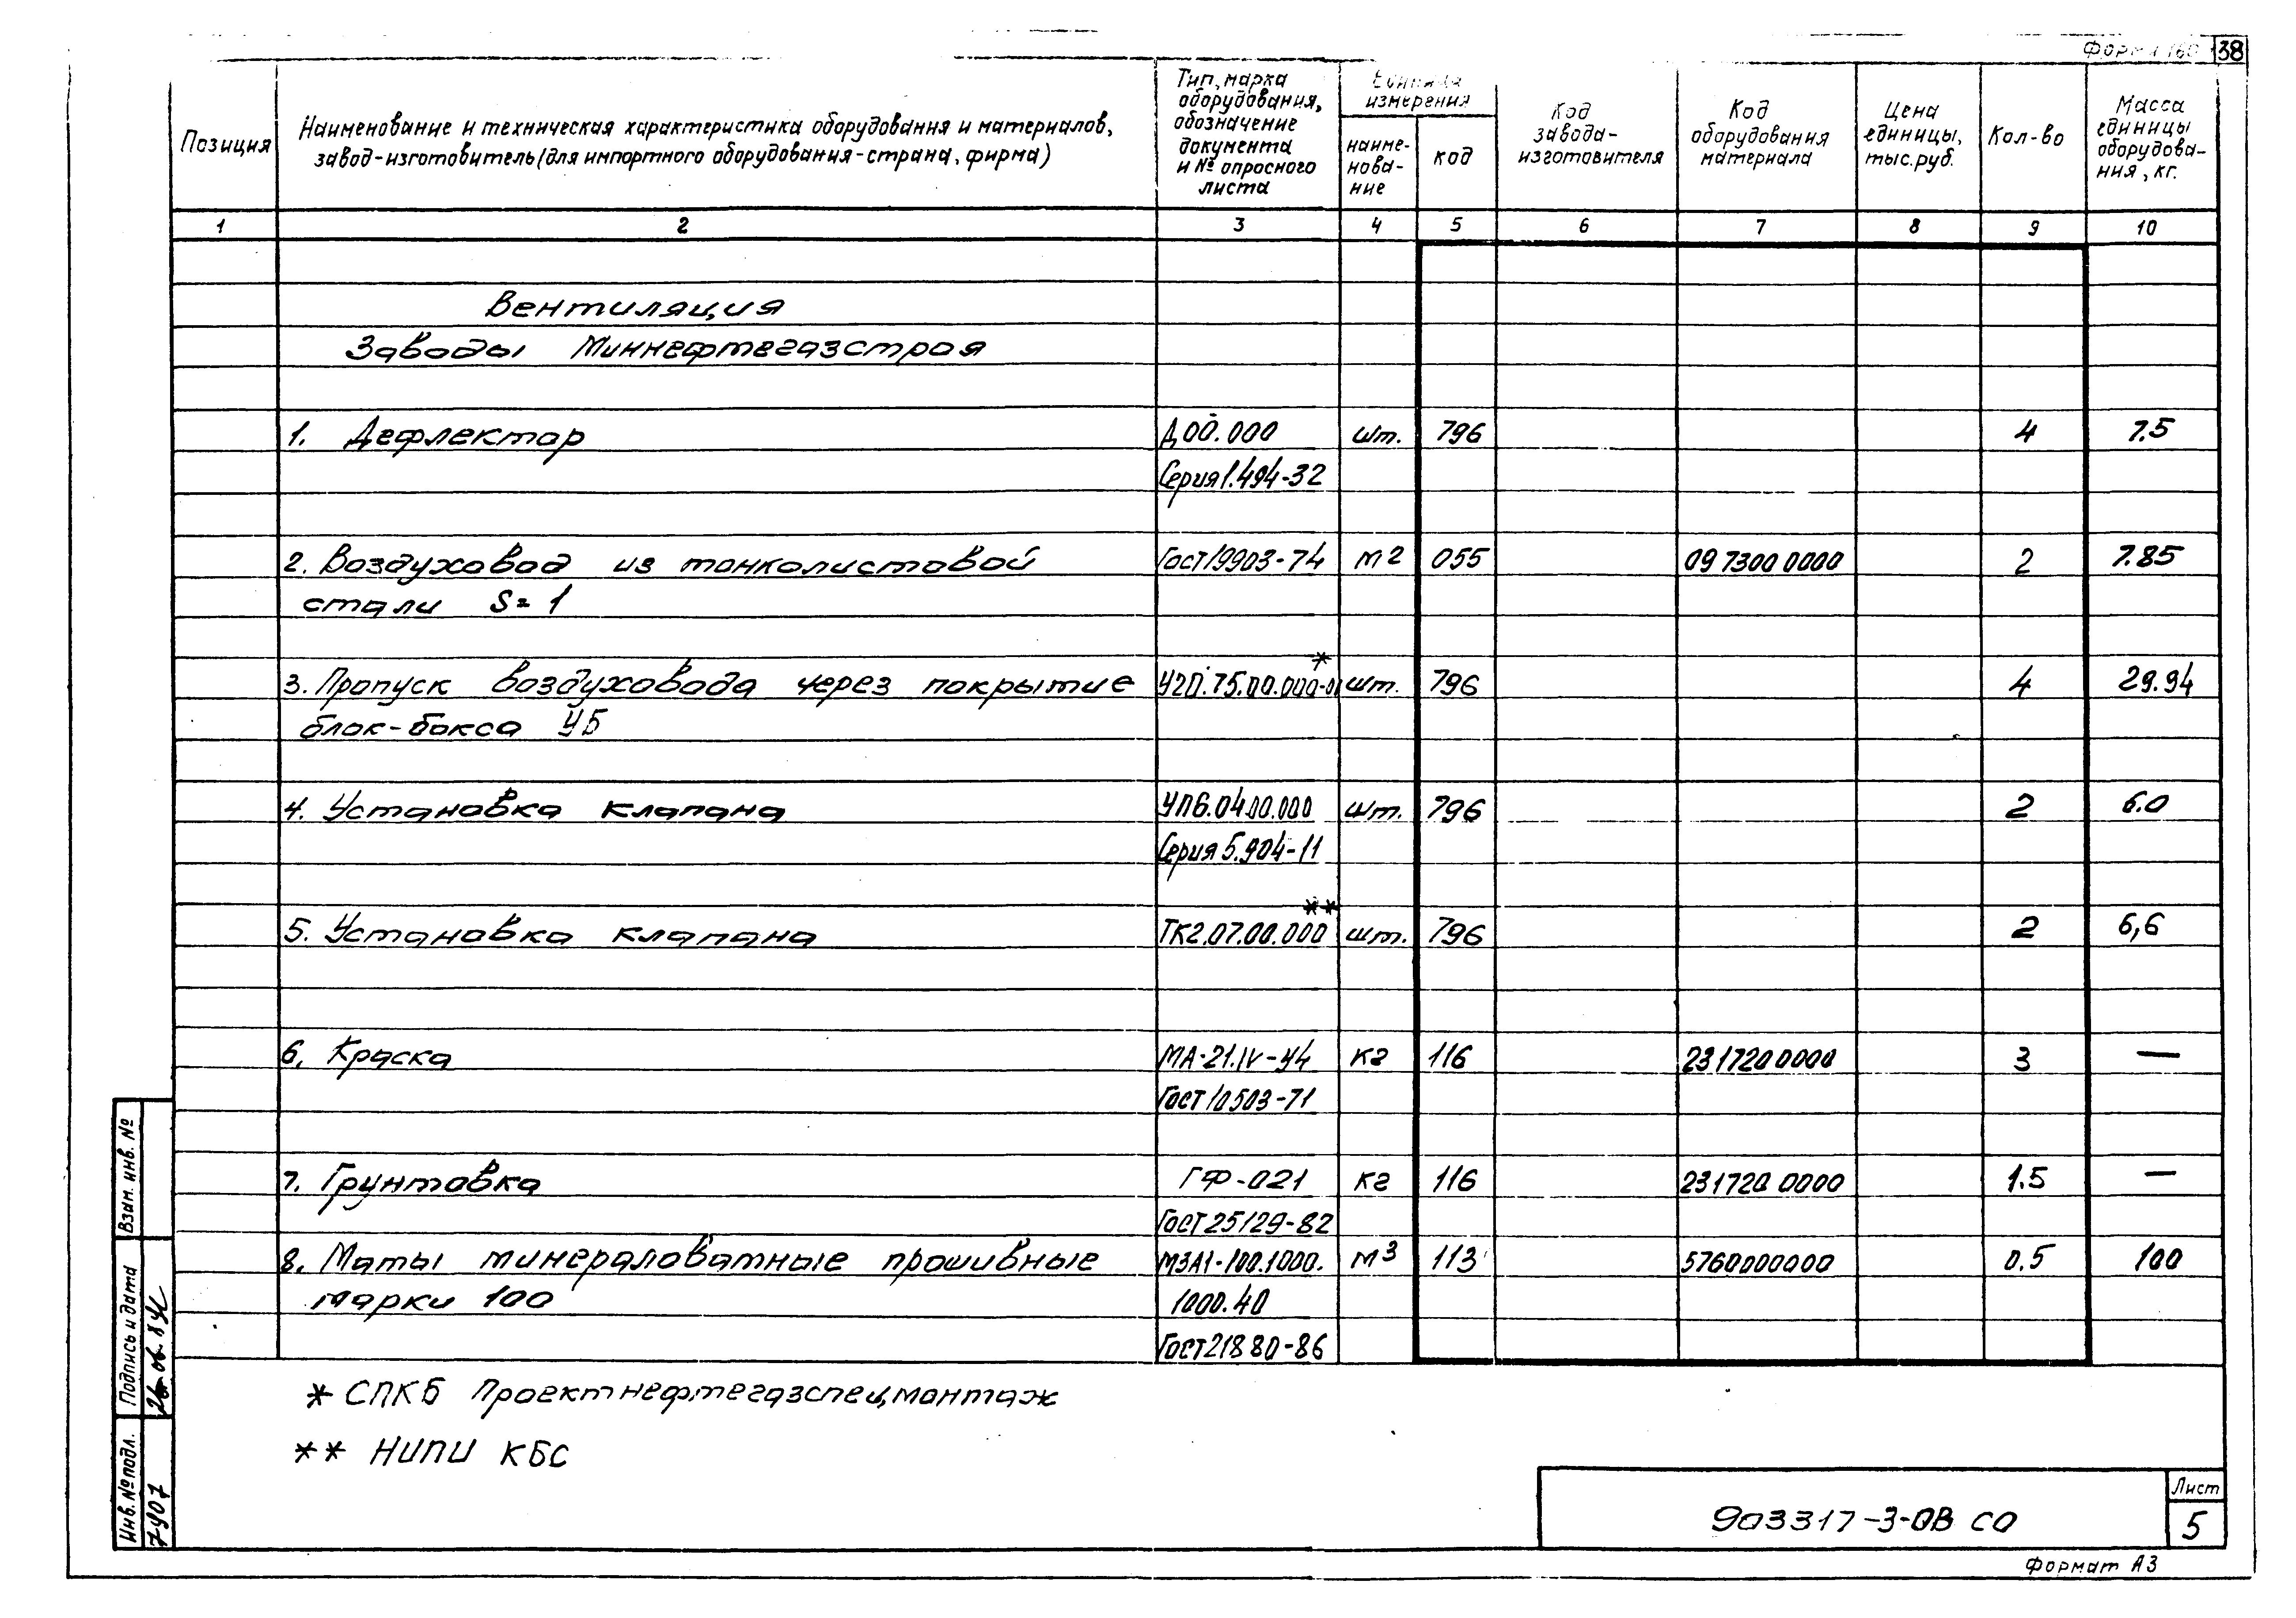 38
Позиция
Наименование и техническая характеристика оборудования и материалов,
завод-изготовитель (для импортного оборудования-страна, фирма)
Тип, марка
оборудования,
обозначение
документа
и № опросного
листа
Единица
измерения
наиме-
нова-
ние
код
Код
завода-
изготовителя
Код
оборудования
материала
Цена
единицы,
тыс.руб.
Кол-во
Масса
единицы
оборудова-
ния, кг.
1 2 3 4 5 6 7 8 9 10
Вентиляция
Заводы Миннефтегазстроя
1. Дефлектор Д00.000 шт. 796 4 7.5
Серия 1.494-32
2. Воздуховод из тонколистовой Гост 19903-74 м2 055 097300 0000 2 7.85
стали S=1
*
3. Пропуск воздуховода через покрытие У20.75.00.000-01 шт. 796 4 29.94
блок-бокса УБ
4. Установка клапана УП6.0400.000 шт. 796 2 6.0
Серия 5.904-11
**
5. Установка клапана ТК2.07.00.000 шт. 796 2 6,6
6. Краска МА-21.IV-У4 кг 116 231720 0000 3 —
Гост 10503-71
7. Грунтовка ГФ-021 кг 116 231720 0000 1.5 —
Гост 25129-82
8. Маты минераловатные прошивные М3А1-100.1000. м3 113 5760000000 0.5 100
марки 100 1000.40
Гост 21880-86
* СПКБ Проектнефтегазспецмонтаж
** НИПИ КБС
Взам. инв. №
Подпись и дата
Инв. № подл.
7907
903317-3-ОВ СО
Лист
5
Формат А3